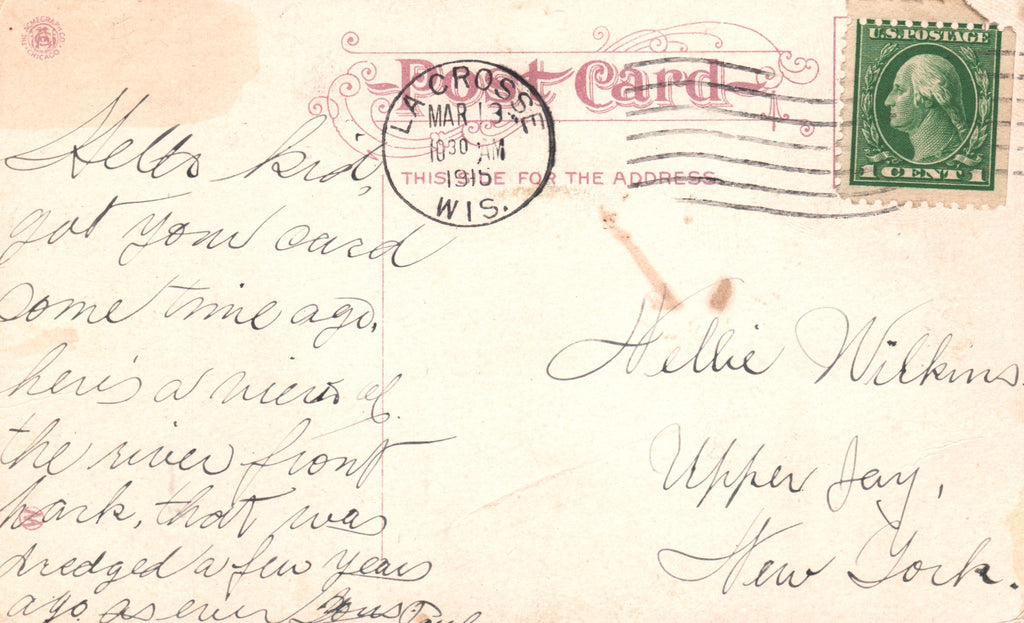 THE ACMEGRAPH CO.
CHICAGO
Post Card
LA CROSSE
MAR 13
10 30 AM
1915
WIS.
THIS SIDE FOR THE ADDRESS.
U.S. POSTAGE
1 CENT 1
Hello kid,
got your card
some time ago.
here's a view of
the river front
park, that was
dredged a few years
ago. as ever Yours Paul
Nellie Wilkins.
Upper Jay,
New York.